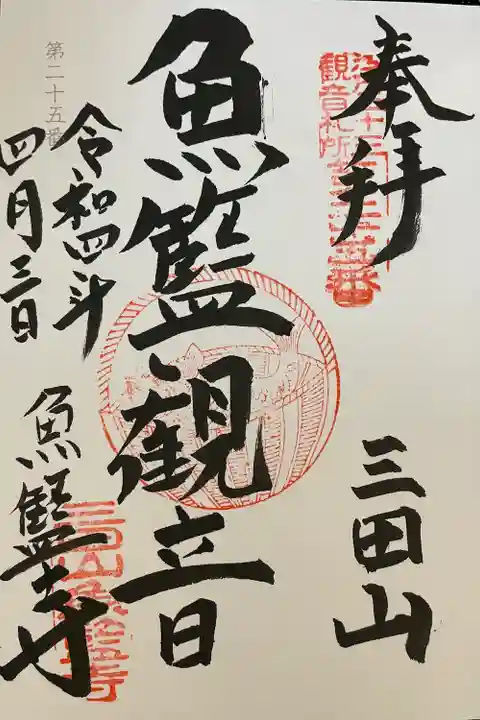 奉拝
江戸三十三
観音札所
第二十五番
三田山
魚籃観音
第二十五番
令和四年
四月三日
魚籃寺
三田山魚籃寺